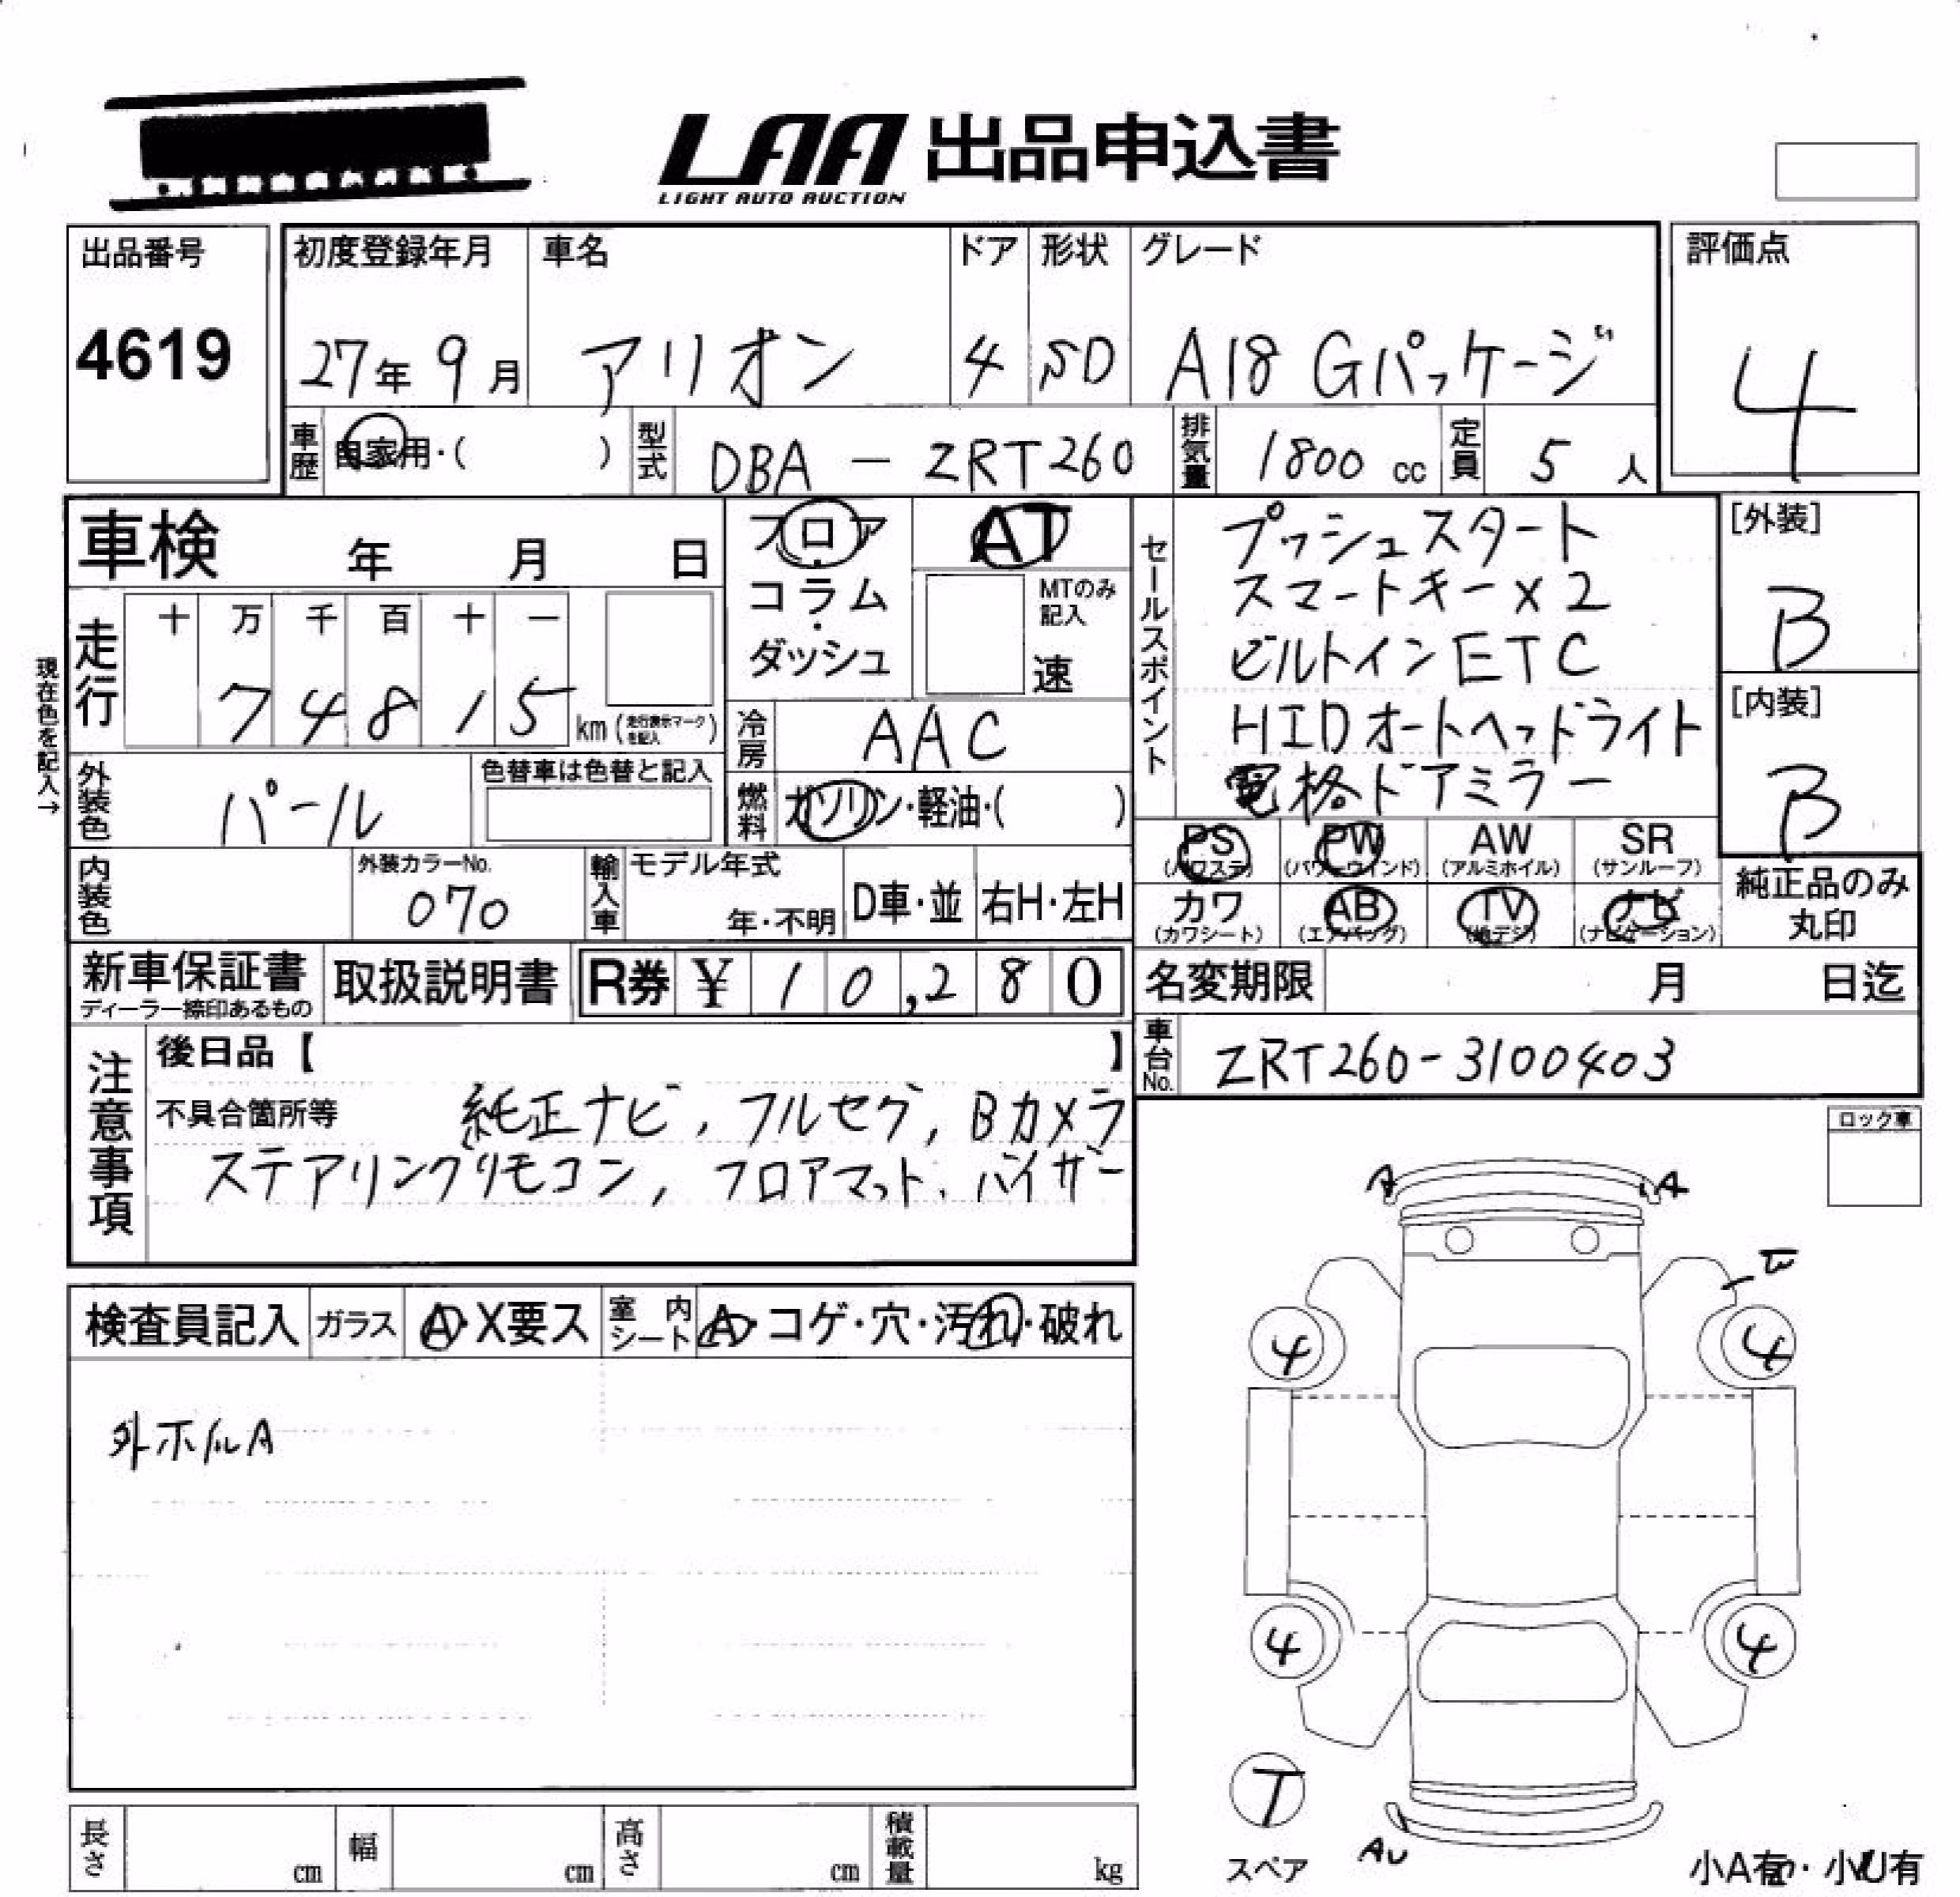 LAA 出品申込書
LIGHT AUTO AUCTION
出品番号
4619
初度登録年月
27年 9月
車名
アリオン
ドア
4
形状
SD
グレード
A18 Gパッケージ
評価点
4
車歴 自家用・( )
型式 DBA - ZRT260
排気量 1800 cc
定員 5 人
車検 年 月 日
フロア・コラム・ダッシュ
AT
MTのみ記入
速
セールスポイント
プッシュスタート
スマートキー×2
ビルトインETC
HIDオートヘッドライト
電格ドアミラー
[外装]
B
[内装]
B
現在色を記入→
走行
十 万 千 百 十 一
7 4 8 1 5 km (走行表示マークを記入)
冷房 AAC
外装色 パール
色替車は色替と記入
燃料 ガソリン・軽油・( )
PS (パワステ) PW (パワーウインド) AW (アルミホイル) SR (サンルーフ)
カワ (カワシート) AB (エアバッグ) TV (地デジ) ナビ (ナビゲーション)
純正品のみ
丸印
内装色
外装カラーNo.
070
輸入車 モデル年式
年・不明
D車・並
右H・左H
新車保証書
ディーラー捺印あるもの
取扱説明書
R券 ¥ 10,280
名変期限 月 日迄
車台No. ZRT260-3100403
注意事項
後日品【 】
不具合箇所等 純正ナビ, フルセグ, Bカメラ
ステアリングリモコン, フロアマット, バイザー
ロック車
検査員記入
ガラス A・X要ス
室内シート A・コゲ・穴・汚れ・破れ
外ホイルA
A A
4 4
4 4
T
スペア
AU
小A有・小U有
長さ cm
幅 cm
高さ cm
積載量 kg